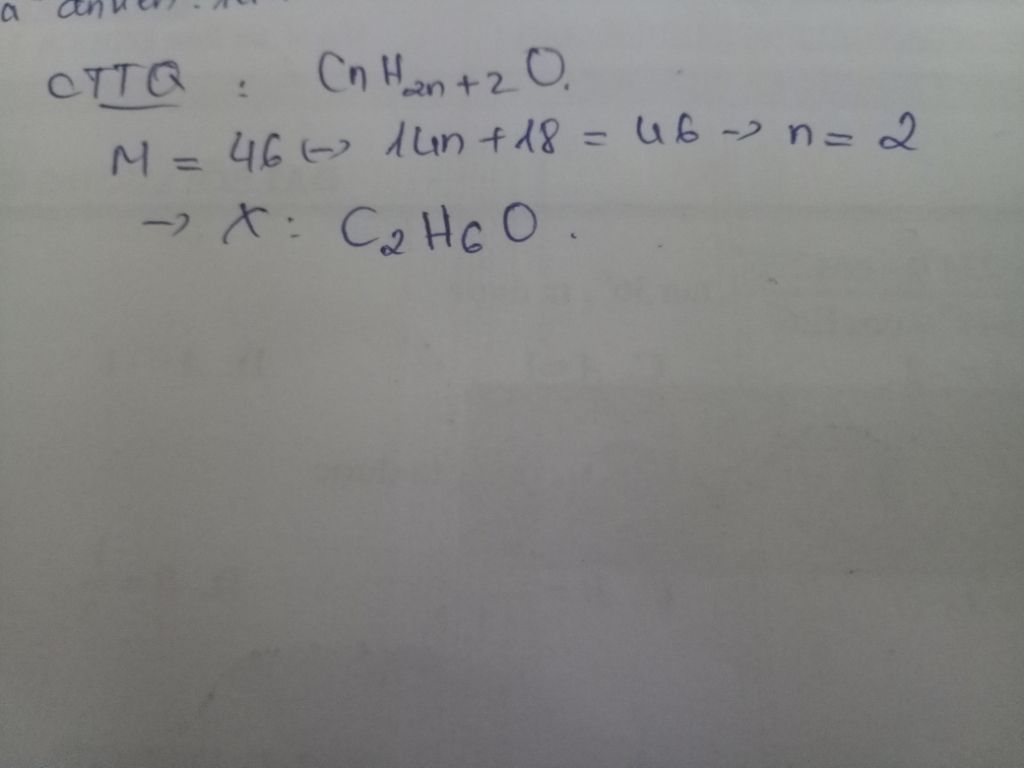 CTTQ : CnH2n+2O.
M = 46 ↔ 14n + 18 = 46 → n = 2
→ X : C2H6O.